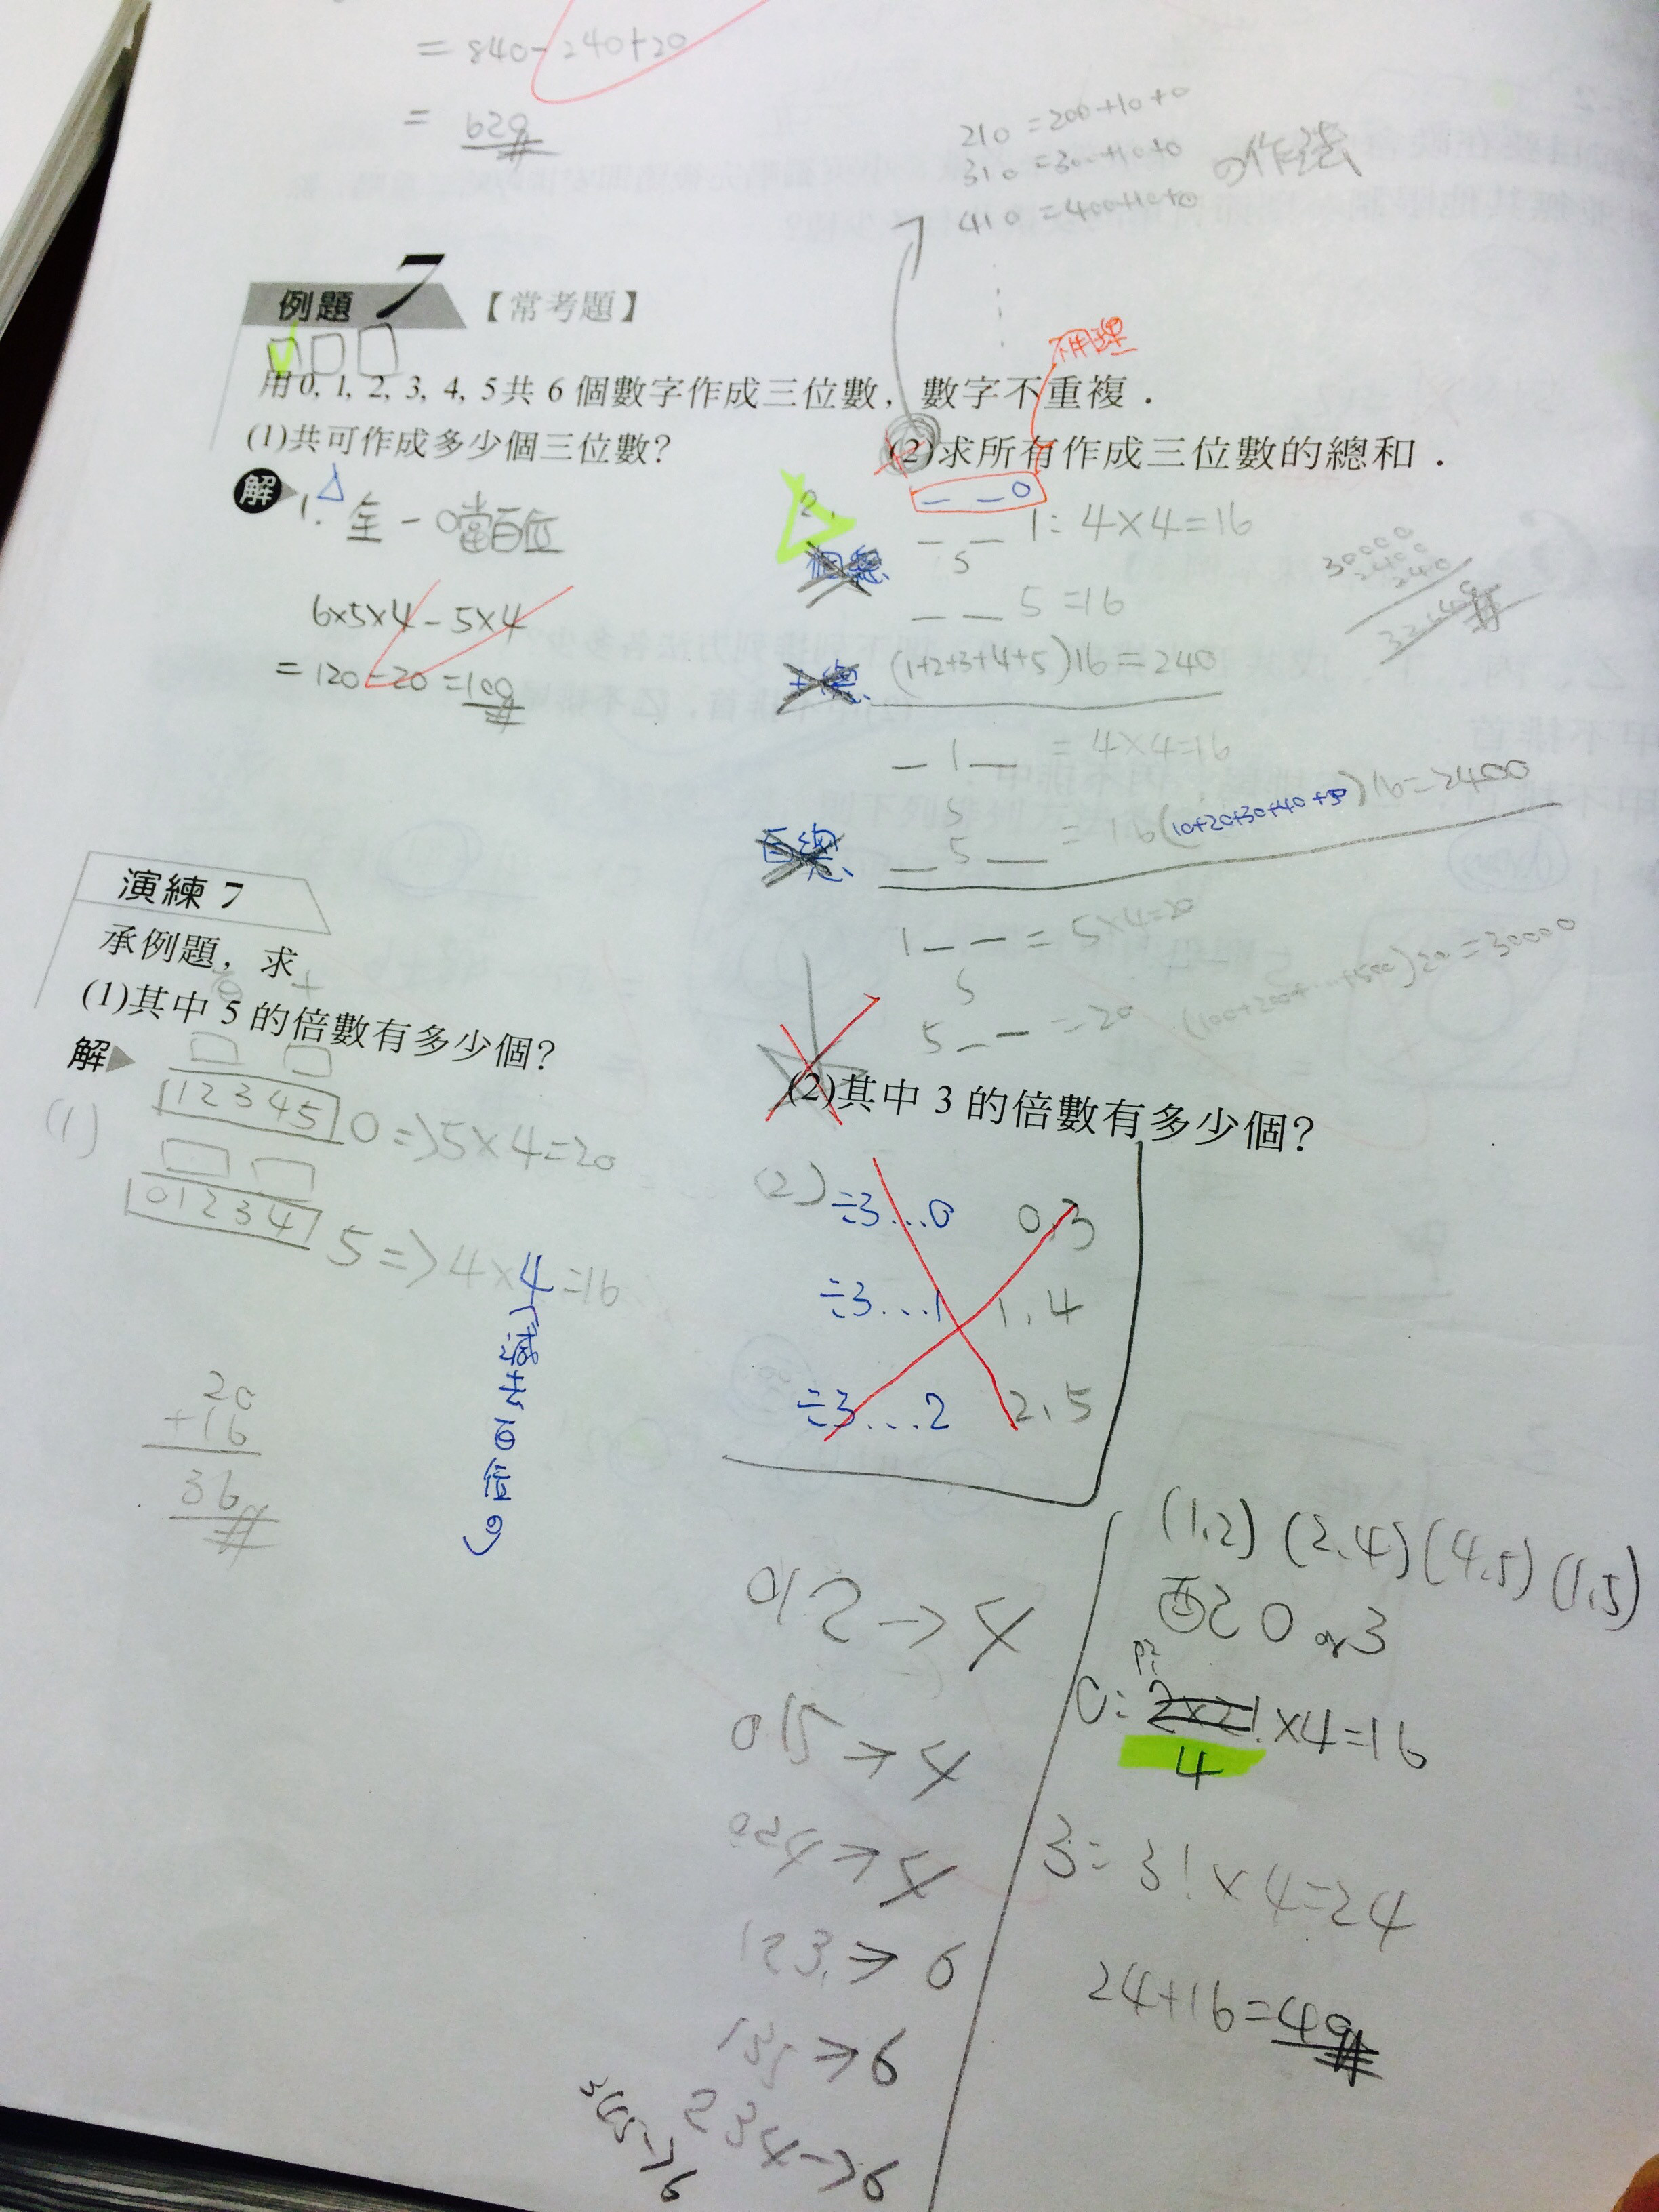 = 840-240+20
= 620
210 = 200+10+0
310 = 300+10+0 の作法
410 = 400+10+0
例題 7 【常考題】
不用理
用 0, 1, 2, 3, 4, 5 共 6 個數字作成三位數，數字不重複．
(1)共可作成多少個三位數？
(2)求所有作成三位數的總和．
解
1. 全－0當百位
6×5×4－5×4
=120－20=100
2.
_ _ 0
_ _ 1: 4×4=16
5
_ _ 5 =16
個總
(1+2+3+4+5)16=240
十總
_ 1 _ = 4×4=16
5
_ 5 _ = 16(10+20+30+40+50)16=2400
百總
1 _ _ = 5×4=20
5
5 _ _ = 20
(100+200+…+500)20=30000
30000
2400
240
32640
演練 7
承例題，求
(1)其中 5 的倍數有多少個？
解
(1)
12345 0=>5×4=20
01234 5=>4×4=16
減去百位0
20
+16
36
(2)其中 3 的倍數有多少個？
(2)
÷3…0 0,3
÷3…1 1,4
÷3…2 2,5
012→4
015→4
024→4
123→6
135→6
234→6
345→6
(1,2) (2,4) (4,5) (1,5)
配 0 or 3
0: 2×2! ×4=16
4
3: 3!×4=24
24+16=40